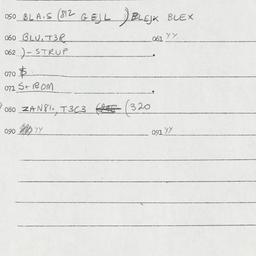 050 BLA.S (812 GEJL ) BLEJK BLEX
060 BLU.T3R 061 YY
062 )-STRUP
070 $
071 S+RDM
080 ZAN81, T3C3 (320
090 YY 091 YY